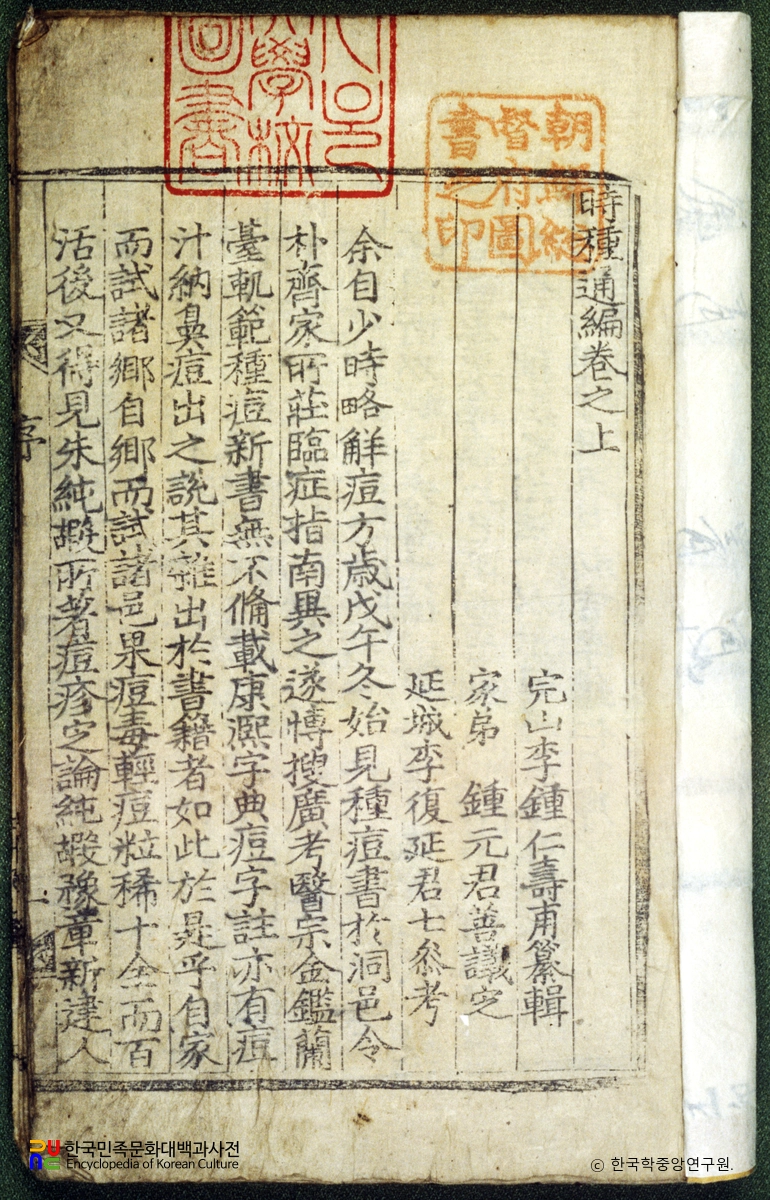 時種通編卷之上
完山李鍾仁壽甫纂輯
家弟 鍾元君善議定
延城李復延君七叅考
余自少時略觧痘方歲戊午冬始見種痘書於洞邑令
朴齊家所莊臨症指南異之遂愽搜廣考醫宗金鑑蘭
䑓軌範種痘新書無不偹載康熙字典痘字註亦有痘
汁納鼻痘出之說其雜出於書籍者如此於是乎自家
而試諸鄉自鄉而試諸邑果痘毒輕痘粒稀十全而百
活後又得見朱純嘏所著痘疹定論純嘏豫章新建人
序
朝鮮総
督府圖
書之印
學校
圖書
한국민족문화대백과사전
Encyclopedia of Korean Culture
© 한국학중앙연구원.